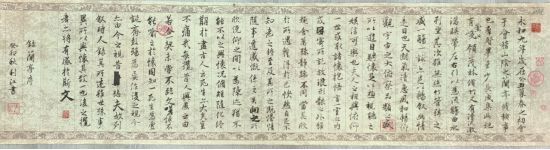 永和九年歲在癸丑暮春之初會
于會稽山陰之蘭亭脩禊事
也羣賢畢至少長咸集此地
有崇領茂林脩竹又有清流激
湍暎帶左右引以為流觴曲水
列坐其次雖無絲竹管弦之
盛一觴一詠亦足以暢敘幽情
是日也天朗氣清惠風和暢仰
觀宇宙之大俯察品類之盛
所以遊目騁懷足以極視聽之
娛信可樂也夫人之相與俯仰
一世或取諸懷抱悟言一室之內
或因寄所託放浪形骸之外雖
趣舍萬殊靜躁不同當其欣
於所遇暫得於己快然自足不
知老之將至及其所之既惓情
隨事遷感慨係之矣向之所
欣俛仰之間以為陳迹猶不
能不以之興懷況脩短隨化終
期於盡古人云死生亦大矣豈
不痛哉每攬昔人興感之由
若合一契未嘗不臨文嗟悼不
能喻之於懷固知一死生為虛
誕齊彭殤為妄作後之視今
亦由今之視昔悲夫故列
敘時人錄其所述雖世殊事
異所以興懷其致一也後之攬
者亦將有感於斯文
蘭亭序
秋書